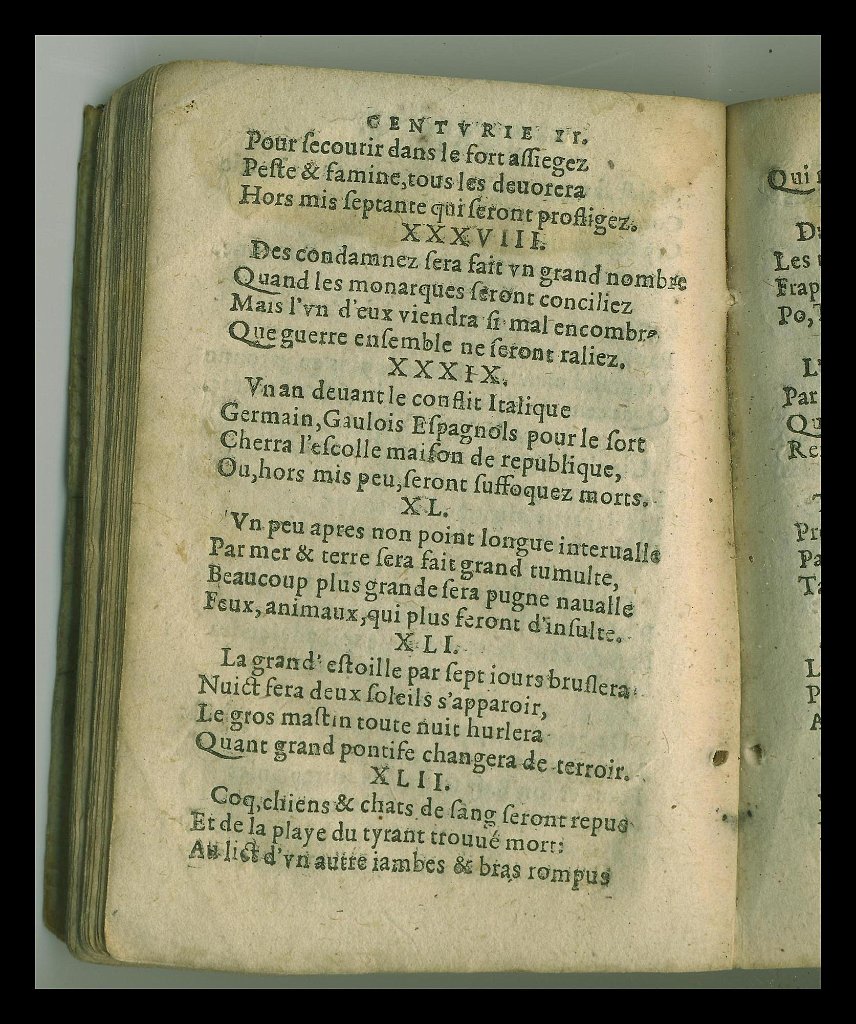 CENTVRIE II.
Pour ſecourir dans le fort aſſiegez
Peſte & famine, tous les deuorera
Hors mis ſeptante qui ſeront profligez.
XXXVIII.
Des condamnez ſera fait vn grand nombre
Quand les monarques ſeront conciliez
Mais l'vn d'eux viendra ſi mal encombre
Que guerre enſemble ne ſeront raliez.
XXXIX.
Vn an deuant le conflit Italique
Germain, Gaulois Eſpagnols pour le fort
Cherra l'eſcolle maiſon de republique,
Ou, hors mis peu, ſeront ſuffoquez morts.
XL.
Vn peu apres non point longue interualle
Par mer & terre ſera fait grand tumulte,
Beaucoup plus grande ſera pugne naualle
Feux, animaux, qui plus feront d'inſulte.
XLI.
La grand' eſtoille par ſept iours bruſlera
Nuict fera deux ſoleils s'apparoir,
Le gros maſtin toute nuit hurlera
Quant grand pontife changera de terroir.
XLII.
Coq, chiens & chats de ſang ſeront repus
Et de la playe du tyrant trouué mort:
Au lict d'vn autre iambes & bras rompus
Qui
Les
Par